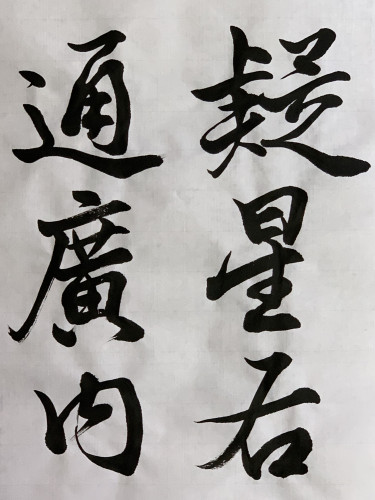 疑星右
通廣内